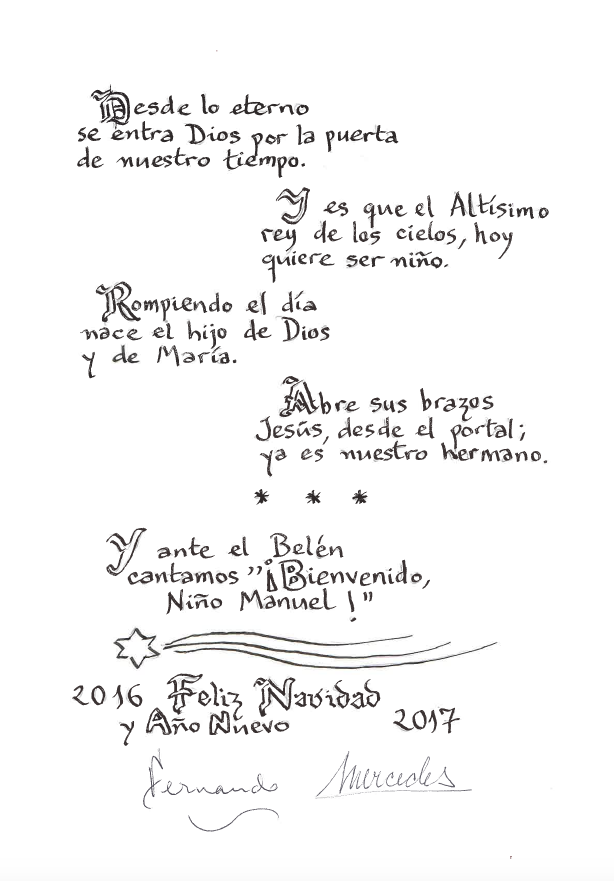 Desde lo eterno
se entra Dios por la puerta
de nuestro tiempo.
Y es que el Altísimo
rey de los cielos, hoy
quiere ser niño.
Rompiendo el día
nace el hijo de Dios
y de María.
Abre sus brazos
Jesús, desde el portal;
ya es nuestro hermano.
* * *
Y ante el Belén
cantamos "¡Bienvenido,
Niño Manuel!"
2016 Feliz Navidad
y Año Nuevo 2017
Fernando Mercedes